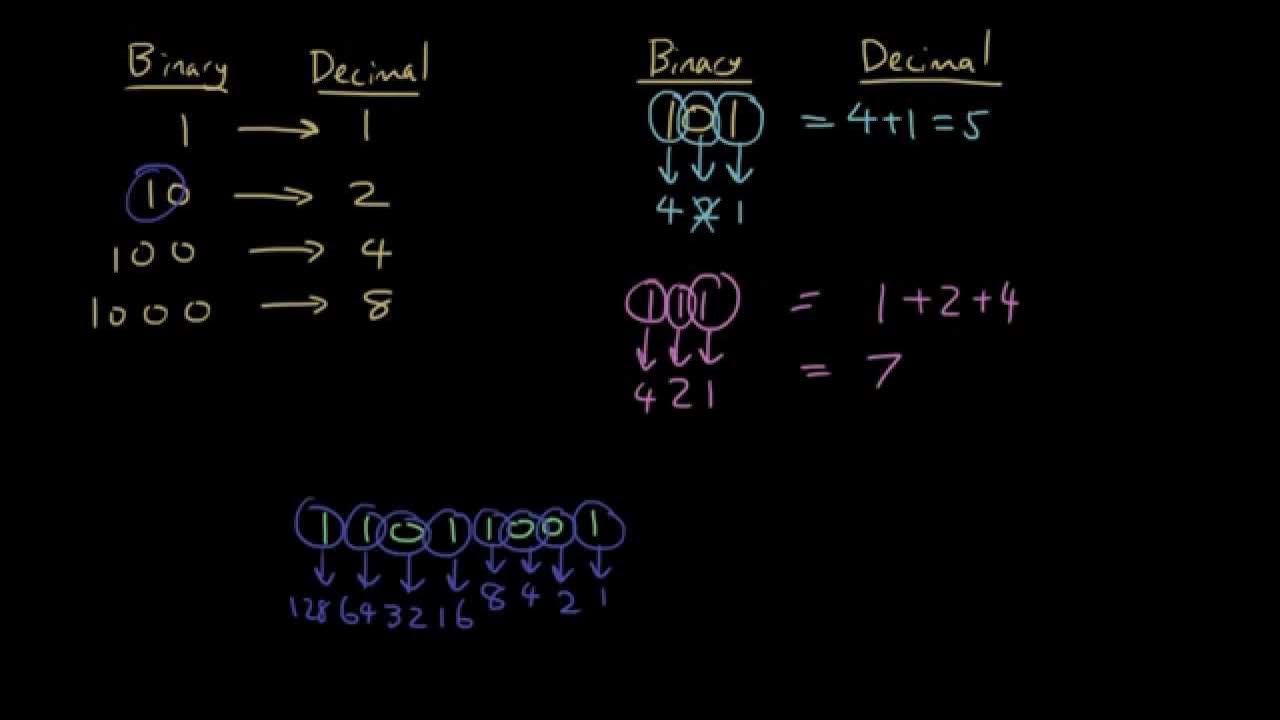 Binary Decimal
1 → 1
10 → 2
100 → 4
1000 → 8
Binary Decimal
101 = 4+1=5
↓ ↓ ↓
4 2 1
111 = 1+2+4
↓ ↓ ↓
4 2 1 = 7
11011001
↓ ↓ ↓ ↓ ↓ ↓ ↓ ↓
128 64 32 16 8 4 2 1